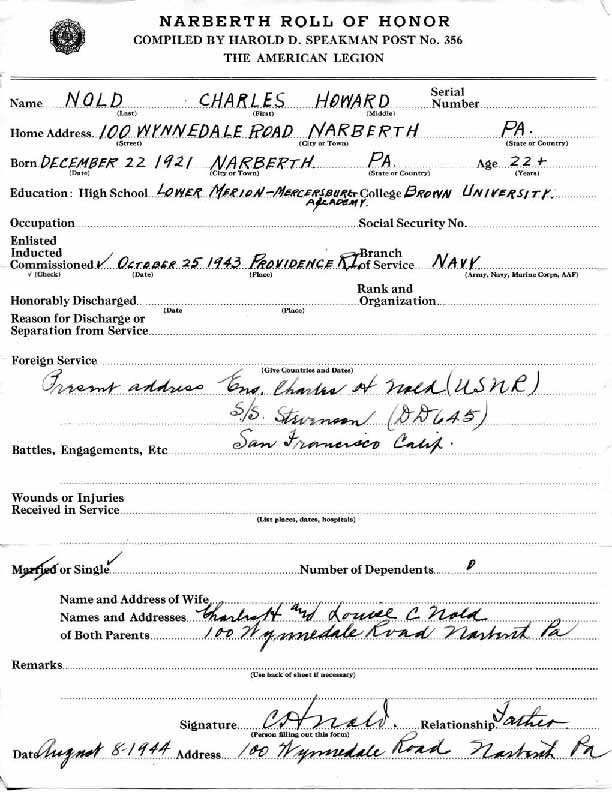 NARBERTH ROLL OF HONOR
COMPILED BY HAROLD D. SPEAKMAN POST No. 356
THE AMERICAN LEGION
Name NOLD CHARLES HOWARD Serial Number
(Last) (First) (Middle)
Home Address 100 WYNNEDALE ROAD NARBERTH PA.
(Street) (City or Town) (State or Country)
Born DECEMBER 22 1921 NARBERTH PA. Age 22+
(Date) (City or Town) (State or Country) (Years)
Education: High School LOWER MERION-MERCERSBURG College BROWN UNIVERSITY.
ACADEMY.
Occupation Social Security No.
Enlisted
Inducted
Commissioned √ OCTOBER 25 1943 PROVIDENCE RI Branch of Service NAVY
√ (Check) (Date) (Place) (Army, Navy, Marine Corps, AAF)
Honorably Discharged Rank and Organization
(Date (Place)
Reason for Discharge or
Separation from Service
Foreign Service
(Give Countries and Dates)
Present address Ens. Charles H Nold (USNR)
S/S. Stevenson (DD645)
San Francisco Calif.
Battles, Engagements, Etc
Wounds or Injuries
Received in Service
(List places, dates, hospitals)
Married or Single √ Number of Dependents 0
Name and Address of Wife
Names and Addresses Charles H and Louise C Nold
of Both Parents 100 Wynnedale Road Narberth Pa
Remarks
(Use back of sheet if necessary)
Signature C H Nold. Relationship Father
(Person filling out this form)
Date August 8-1944 Address 100 Wynnedale Road Narberth Pa